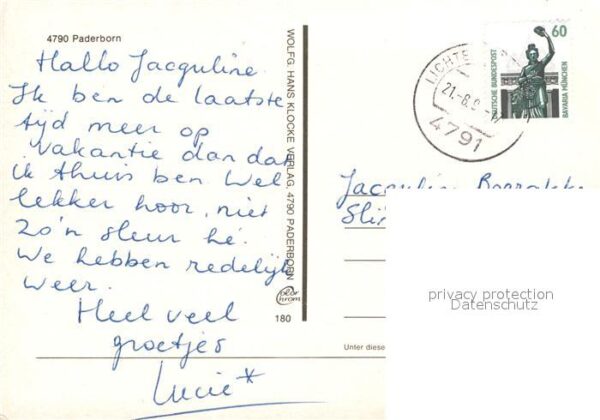 4790 Paderborn
Hallo Jacquline
Ik ben de laatste
tijd meer op
vakantie dan dat
ik thuis ben. Wel
lekker hoor, niet
zo'n sleur hé.
We hebben redelijk
weer.
Heel veel
groetjes
Lucie*
WOLFG. HANS KLOCKE VERLAG, 4790 PADERBORN
Color
chrom
180
60
DEUTSCHE BUNDESPOST
BAVARIA MÜNCHEN
LICHTE
21.-8.9
4791
Jacqulin
privacy protection
Datenschutz
Unter diese